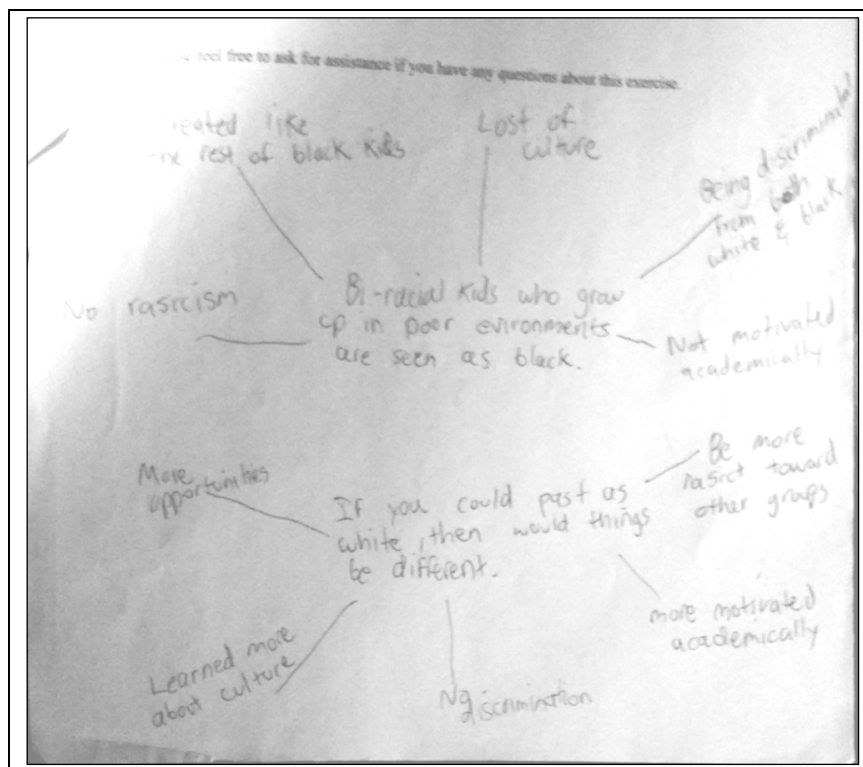 feel free to ask for assistance if you have any questions about this exercise.
reated like
he rest of black kids
Lost of
culture
Being discriminated
from both
white & black
No rasicism
Bi-racial kids who grow
up in poor evironments
are seen as black.
Not motivated
academically
More
opportunities
If you could past as
white, then would things
be different.
Be more
rasict toward
other groups
more motivated
academically
Learned more
about culture
No
discrimination